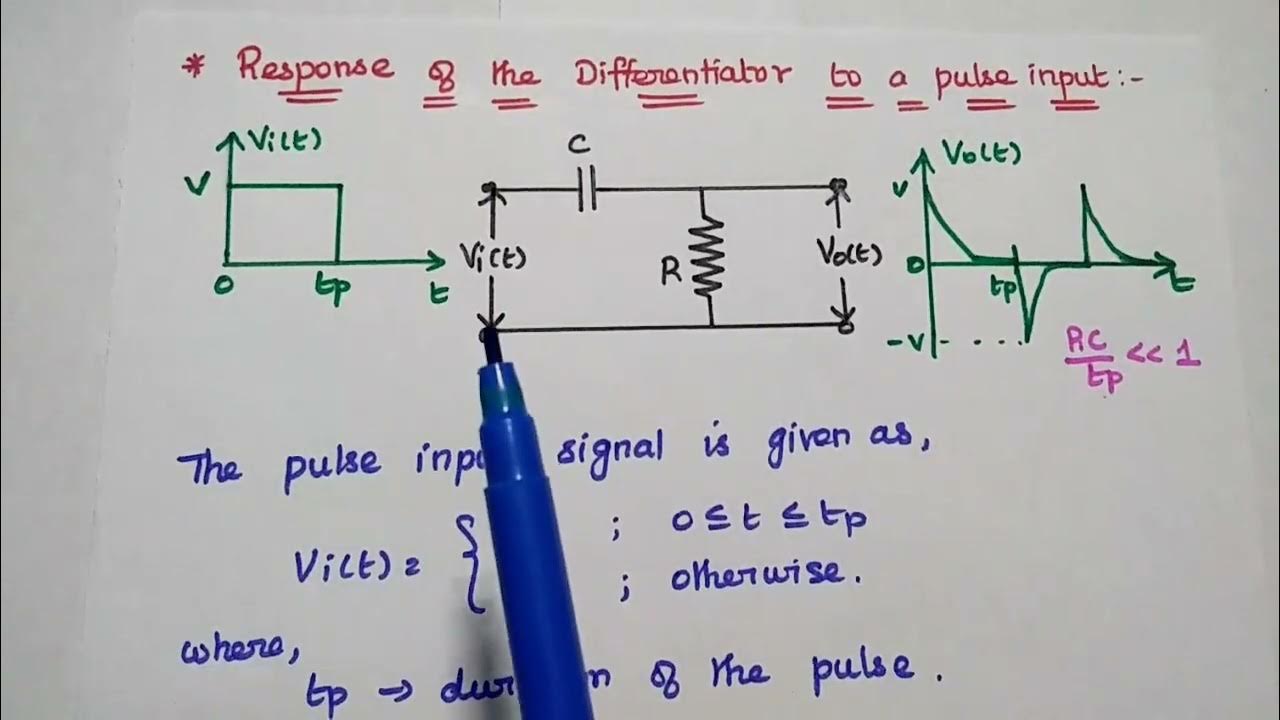 * Response of the Differentiator to a pulse input:-
Vi(t)
V
0
tp
t
C
Vi(t)
R
Vo(t)
Vo(t)
V
0
tp
t
-V
RC/tp << 1
The pulse signal is given as,
Vi(t) = { ; 0 ≤ t ≤ tp
; otherwise.
where,
tp → of the pulse.